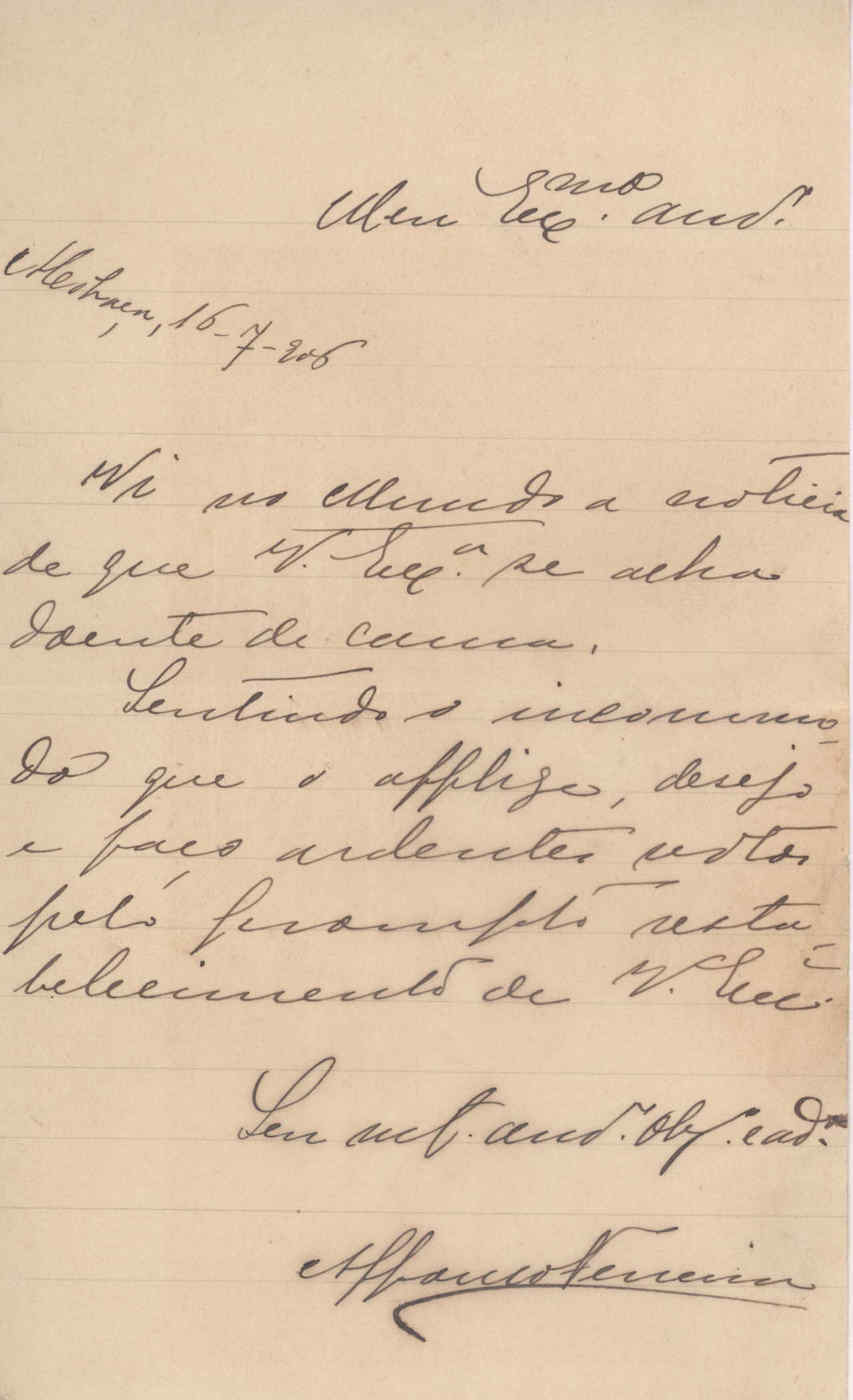 Meu Ex.mo am.º
Alcobaça, 16-7-906
Vi no Mundo a noticia
de que V. Ex.ª se acha
doente de cama.
Sentindo o incommo-
do que o afflige, desejo
e faço ardentes votos
pelo prompto resta-
belecimento de V. Ex.
Seu mt. am.º obg.º e ad.or
Affonso Ferreira